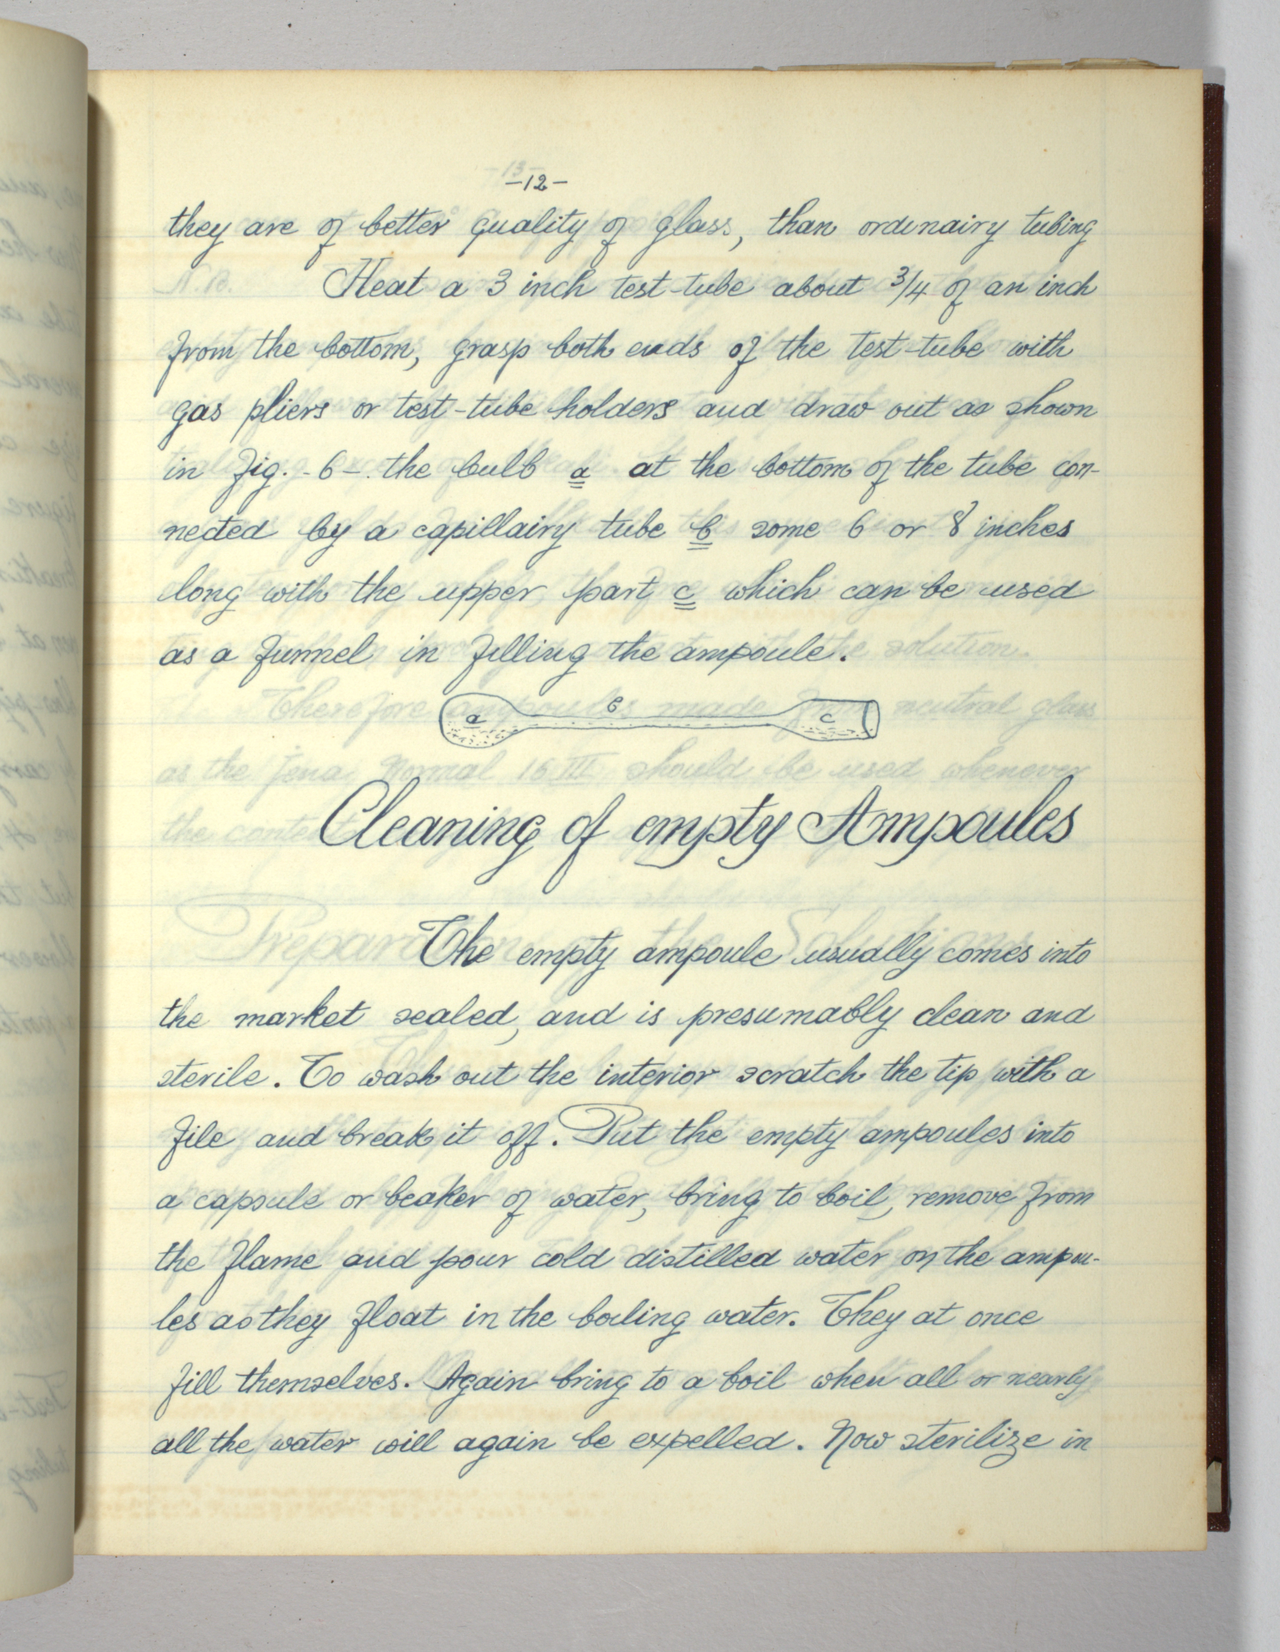 -12-
they are of better quality of glass, than ordinairy tubing
Heat a 3 inch test-tube about 3/4 of an inch
from the bottom, grasp both ends of the test-tube with
gas pliers or test-tube holders and draw out as shown
in Fig. -6-. the bulb a at the bottom of the tube con-
nected by a capillairy tube b some 6 or 8 inches
long with the upper part c which can be used
as a funnel in filling the ampoule.
a b c
Cleaning of empty Ampoules
The empty ampoule usually comes into
the market sealed, and is presumably clean and
sterile. To wash out the interior scratch the tip with a
file and break it off. Put the empty ampoules into
a capsule or beaker of water, bring to boil, remove from
the flame and pour cold distilled water on the ampu-
les as they float in the boiling water. They at once
fill themselves. Again bring to a boil when all or nearly
all the water will again be expelled. Now sterilize in